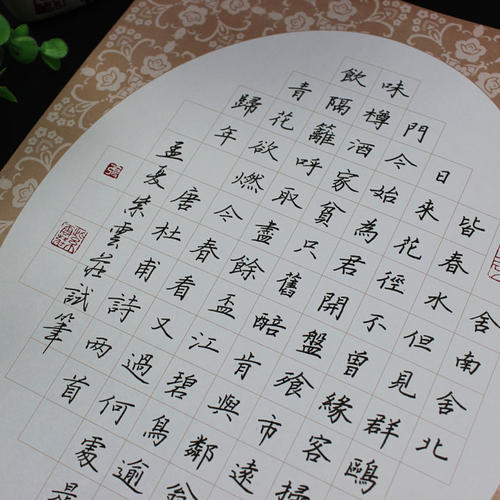 舍南舍北
皆春水但見群鷗
日來花徑不曾緣客掃
門今始為君開盤飧市遠
味樽酒家貧只舊醅肯與鄰翁
飲隔籬呼取盡餘盃江碧鳥逾
青花欲燃今春看又過何處是
歸年唐杜甫詩兩首
孟夏紫雲莊試筆